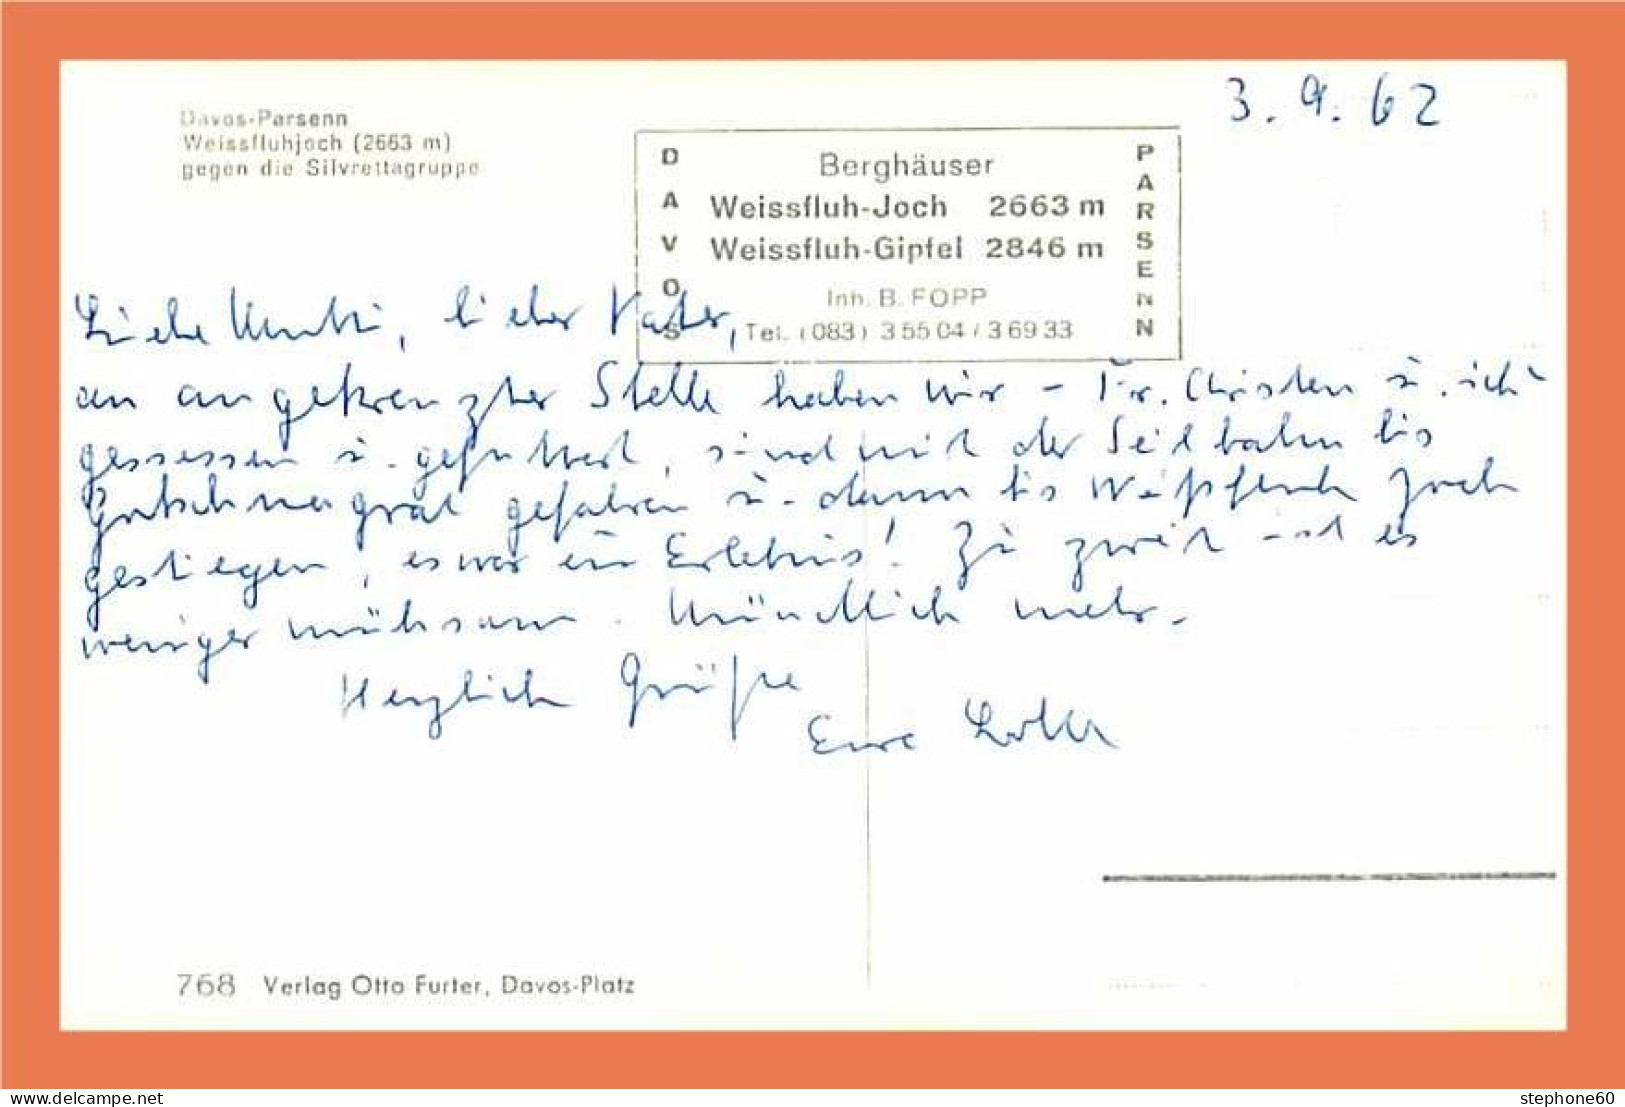 3. 9. 62
Davos-Parsenn
Weissfluhjoch (2663 m)
gegen die Silvrettagruppe
DAVOS
Berghäuser
Weissfluh-Joch 2663 m
Weissfluh-Gipfel 2846 m
Inh. B. FOPP
Tel. (083) 3 55 04 / 3 69 33
PARSENN
Liebe Mutti, lieber Vater,
an angekreuzter Stelle haben wir - Fr. Christen u. ich -
gesessen u. gefuttert, sind mit der Seilbahn bis
Gotschnagrat gefahren u. dann bis Weißfluh Joch
gestiegen, es war ein Erlebnis! Zu zweit ist es
weniger mühsam. Mündlich mehr.
Herzlich Grüße
Eure
768 Verlag Otto Furter, Davos-Platz
delcampe.net
stephone60